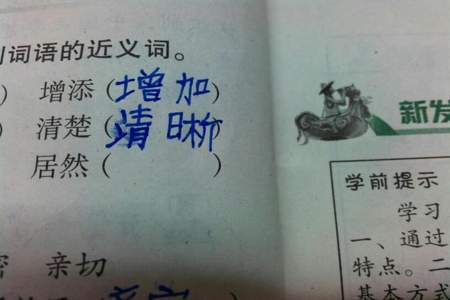 词语的近义词。
) 增添(增加)
) 清楚(清晰)
居然( )
亲切
新发
学前提示
学习
一、通过
特点。二
基本方式